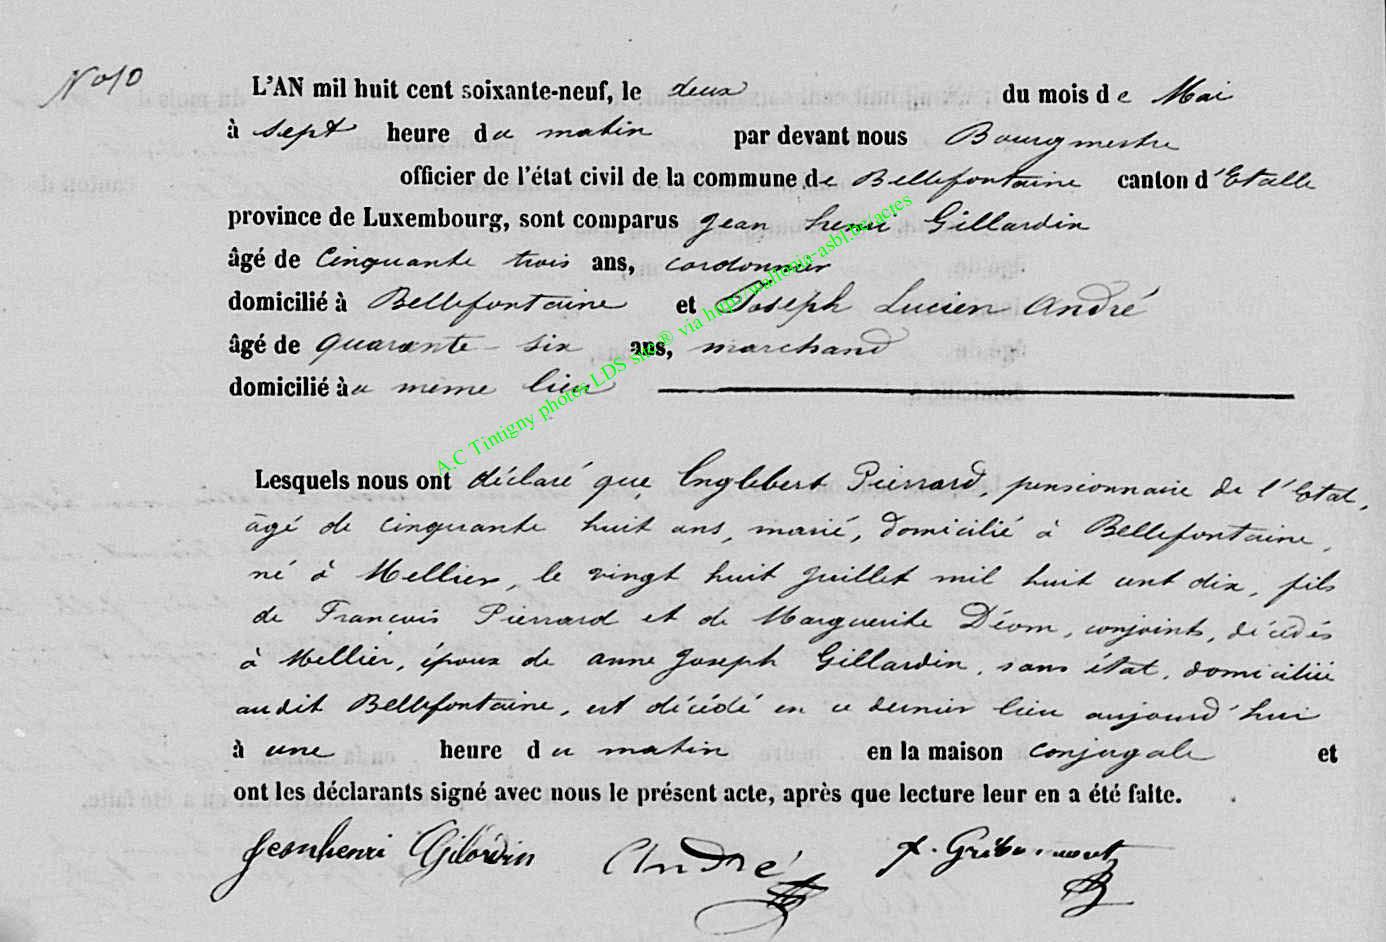 N° 10
L'AN mil huit cent soixante-neuf, le deux du mois de Mai
à sept heure du matin par devant nous Bourgmestre
officier de l'état civil de la commune de Bellefontaine canton d'Etalle
province de Luxembourg, sont comparus Jean henri Gillardin
âgé de Cinquante trois ans, cordonnier
domicilié à Bellefontaine et Joseph Lucien André
âgé de quarante-six ans, marchand
domicilié au même lieu
Lesquels nous ont déclaré que Englebert Pierrard, pensionnaire de l'Etat,
âgé de cinquante huit ans, marié, domicilié à Bellefontaine,
né à Mellier, le vingt huit Juillet mil huit cent dix, fils
de François Pierrard et de Marguerite Déom, conjoints, décédés
à Mellier, époux de anne Joseph Gillardin, sans état, domiciliée
audit Bellefontaine, est décédé en ce dernier lieu aujourd'hui
à une heure du matin en la maison conjugale et
ont les déclarants signé avec nous le présent acte, après que lecture leur en a été faite.
Jeanhenri Gilardin André
A.C Tintigny photos LDS site® via http://wallonia-asbl.be/actes